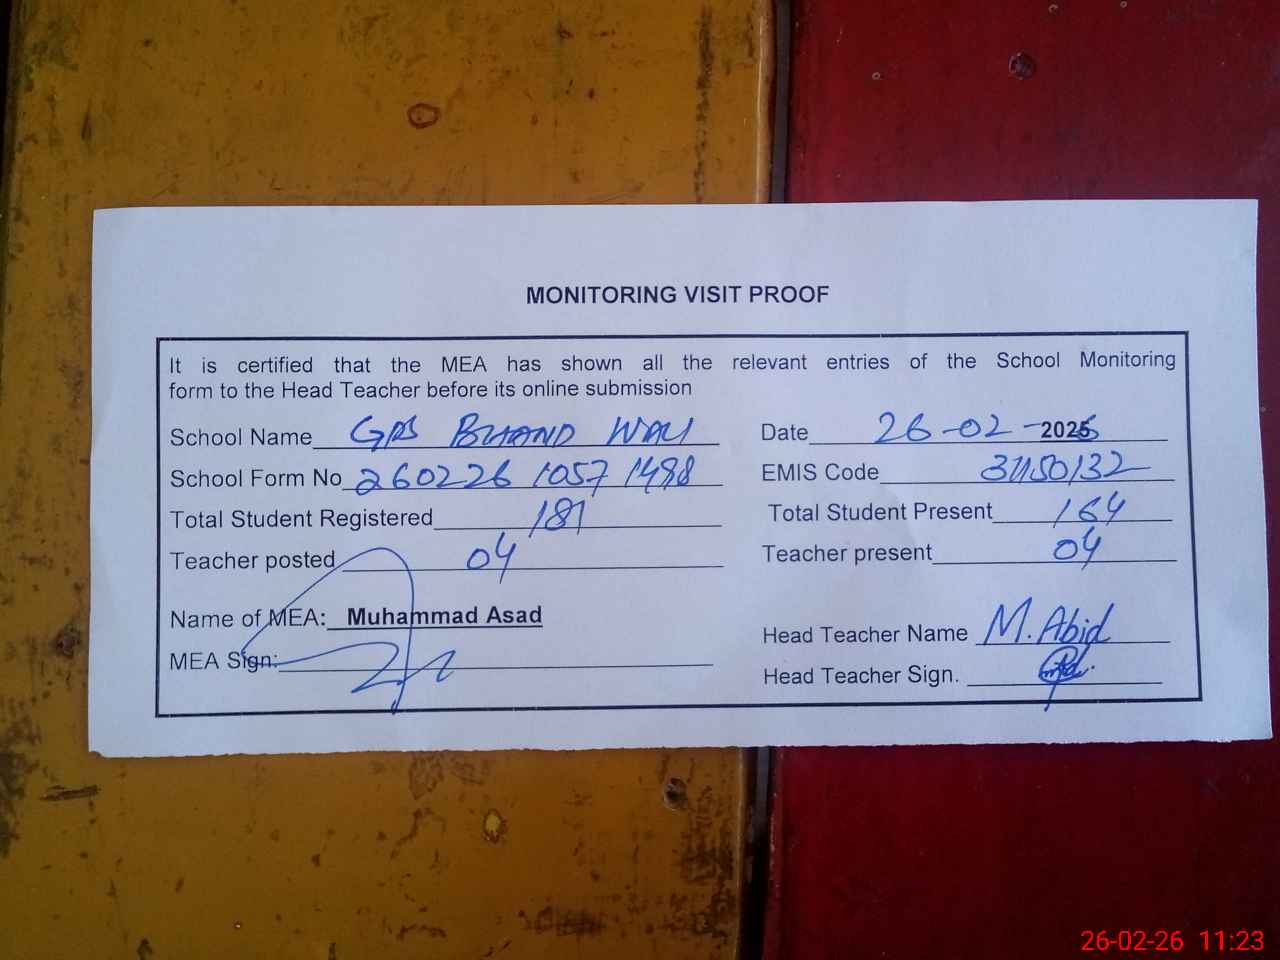 MONITORING VISIT PROOF
It is certified that the MEA has shown all the relevant entries of the School Monitoring
form to the Head Teacher before its online submission
School Name GPS BHAND WALI Date 26-02-2026
School Form No 260226 1057 1498 EMIS Code 31150132
Total Student Registered 181 Total Student Present 164
Teacher posted 04 Teacher present 04
Name of MEA: Muhammad Asad
Head Teacher Name M. Abid
MEA Sign:
Head Teacher Sign.
26-02-26 11:23